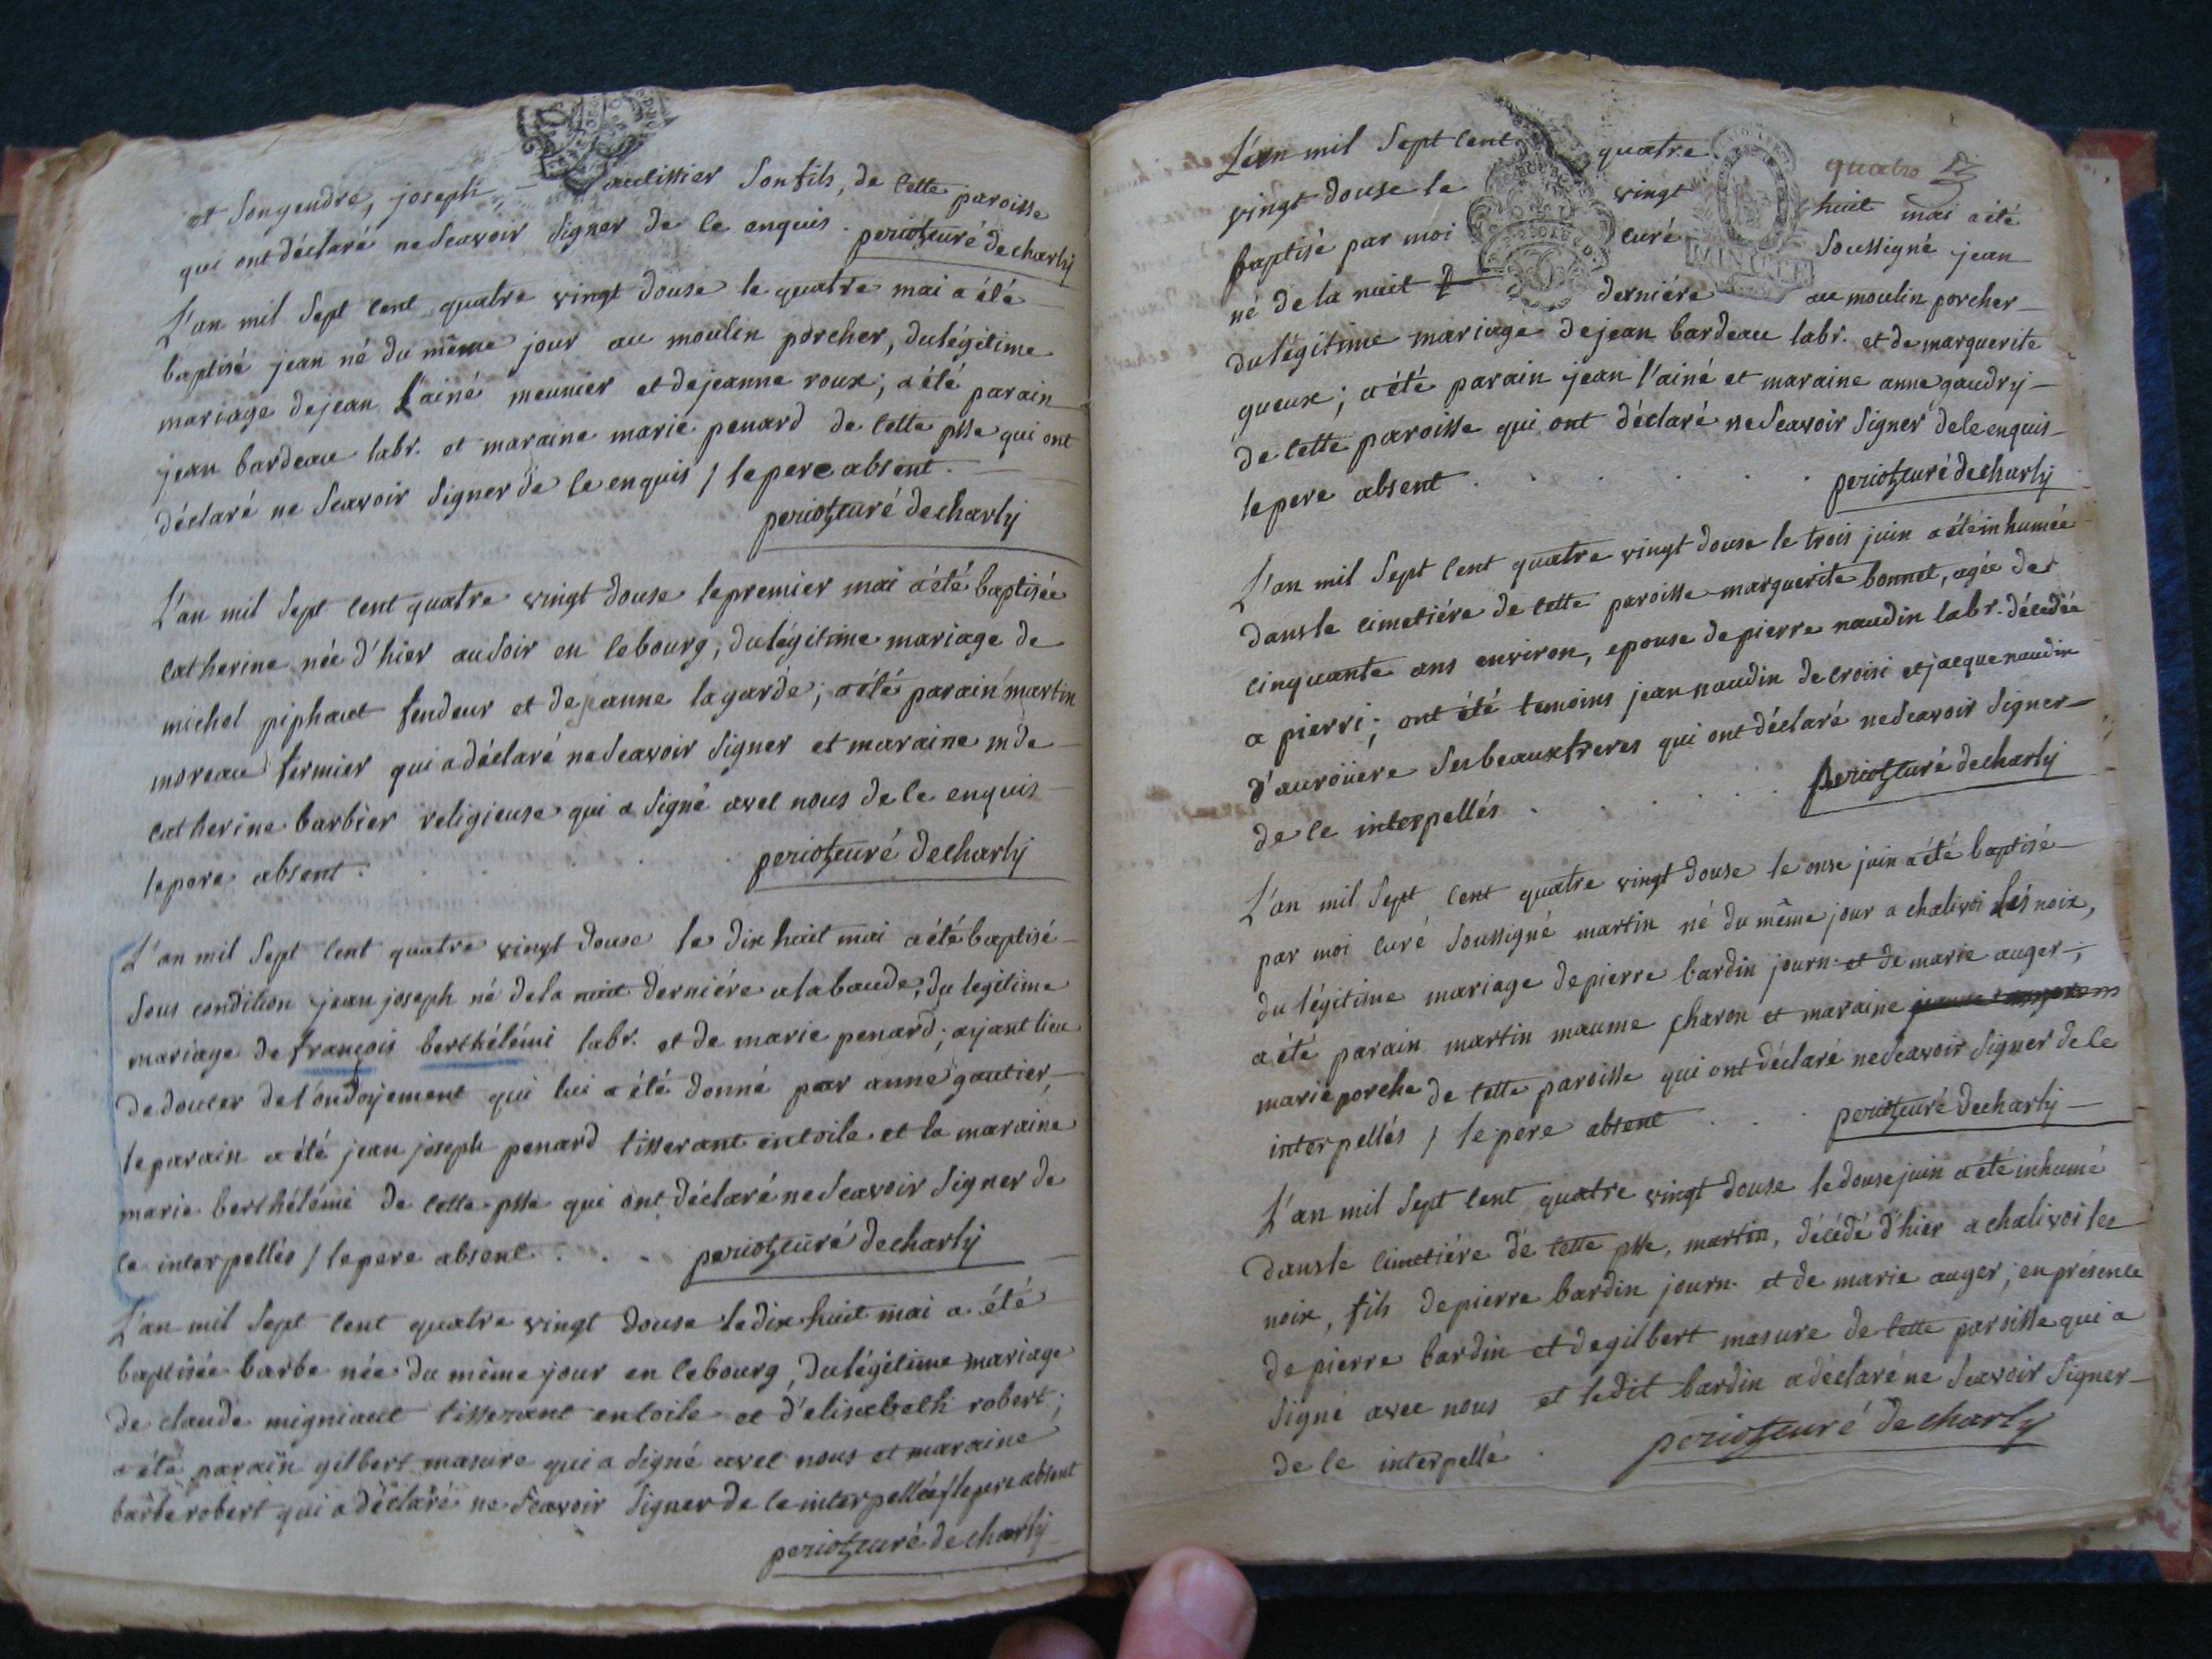 et son gendre, joseph aulissier son fils, de cette paroisse
qui ont déclaré ne scavoir signer de ce enquis. periot curé de charly
L'an mil sept cent quatre vingt douse le quatre mai a été
baptisé jean né du même jour au moulin porcher, du légitime
mariage de jean l'ainé meunier et de jeanne roux; a été parain
jean bardeau labr. et maraine marie penard de cette psse qui ont
déclaré ne scavoir signer de ce enquis / le pere absent.
periot curé de charly
L'an mil sept cent quatre vingt douse le premier mai a été baptisée
catherine née d'hier au soir en ce bourg, du légitime mariage de
michel piphaut fendeur et de jeanne lagarde; a été parain martin
moreau fermier qui a déclaré ne scavoir signer et maraine mde
catherine barbier religieuse qui a signé avec nous de ce enquis
le pere absent. periot curé de charly
L'an mil sept cent quatre vingt douse le dix huit mai a été baptisé
sous condition jean joseph né de la nuit derniére a la baude, du legitime
mariage de françois berthélémi labr. et de marie penard; ayant lieu
de douter de l'ondoyement qui lui a été donné par anne gautier,
le parain a été jean joseph penard tisserant en toile et la maraine
marie berthélémi de cette psse qui ont déclaré ne scavoir signer de
ce interpellés / le pere absent . . . periot curé de charly
L'an mil sept cent quatre vingt douse le dix huit mai a été
baptisée barbe née du même jour en ce bourg, du légitime mariage
de claude migniaut tisserant en toile et d'elisabeth robert;
a été parain gilbert masure qui a signé avec nous et maraine
barbe robert qui a déclaré ne scavoir signer de ce interpellée / le pere absent
periot curé de charly
quatre
L'an mil sept cent quatre
vingt douse le vingt huit mai a été
baptisé par moi curé soussigné jean
né de la nuit derniére au moulin porcher
du légitime mariage de jean bardeau labr. et de marguerite
gueux; a été parain jean l'ainé et maraine anne gaudry
de cette paroisse qui ont déclaré ne scavoir signer de ce enquis
le pere absent . . . . . periot curé de charly
L'an mil sept cent quatre vingt douse le trois juin a été inhumée
dans le cimetiére de cette paroisse marguerite bonnet, agée de
cinquante ans environ, epouse de pierre naudin labr. décédée
a pierri; ont été temoins jean naudin de croisi et jacque naudin
d'aurouere ses beaux freres qui ont déclaré ne scavoir signer
de ce interpellés . . . . . periot curé de charly
L'an mil sept cent quatre vingt douse le onse juin a été baptisé
par moi curé soussigné martin né du même jour a chalivoi lés noix,
du légitime mariage de pierre bardin journ. et de marie auger;
a été parain martin maume charon et maraine
marie porche de cette paroisse qui ont déclaré ne scavoir signer de ce
interpellés / le pere absent . . periot curé de charly
L'an mil sept cent quatre vingt douse le douse juin a été inhumé
dans le cimetiére de cette psse, martin, décédé d'hier a chalivoi les
noix, fils de pierre bardin journ. et de marie auger; en présence
de pierre bardin et de gilbert masure de cette paroisse qui a
signé avec nous et le dit bardin a déclaré ne scavoir signer
de ce interpellé . periot curé de charly